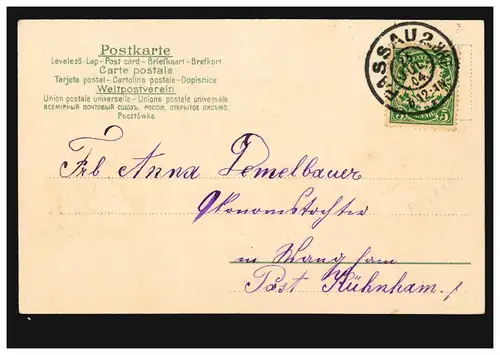 Postkarte
Levelező-Lap - Post card - Briefkaart - Brefkort
Carte postale
Tarjeta postal - Cartolina postale - Dopisnice
Weltpostverein
Union postale universelle - Unione postale universale
ВСЕМІРНЫЙ ПОЧТОВЫЙ СОЮЗЪ. РОССІЯ. ОТКРЫТОЕ ПИСЬМО.
Pocztówka.
PASSAU 2
04
Frl Anna Demelbauer
Ökonomstochter
in Mangham
Post Kühnham.